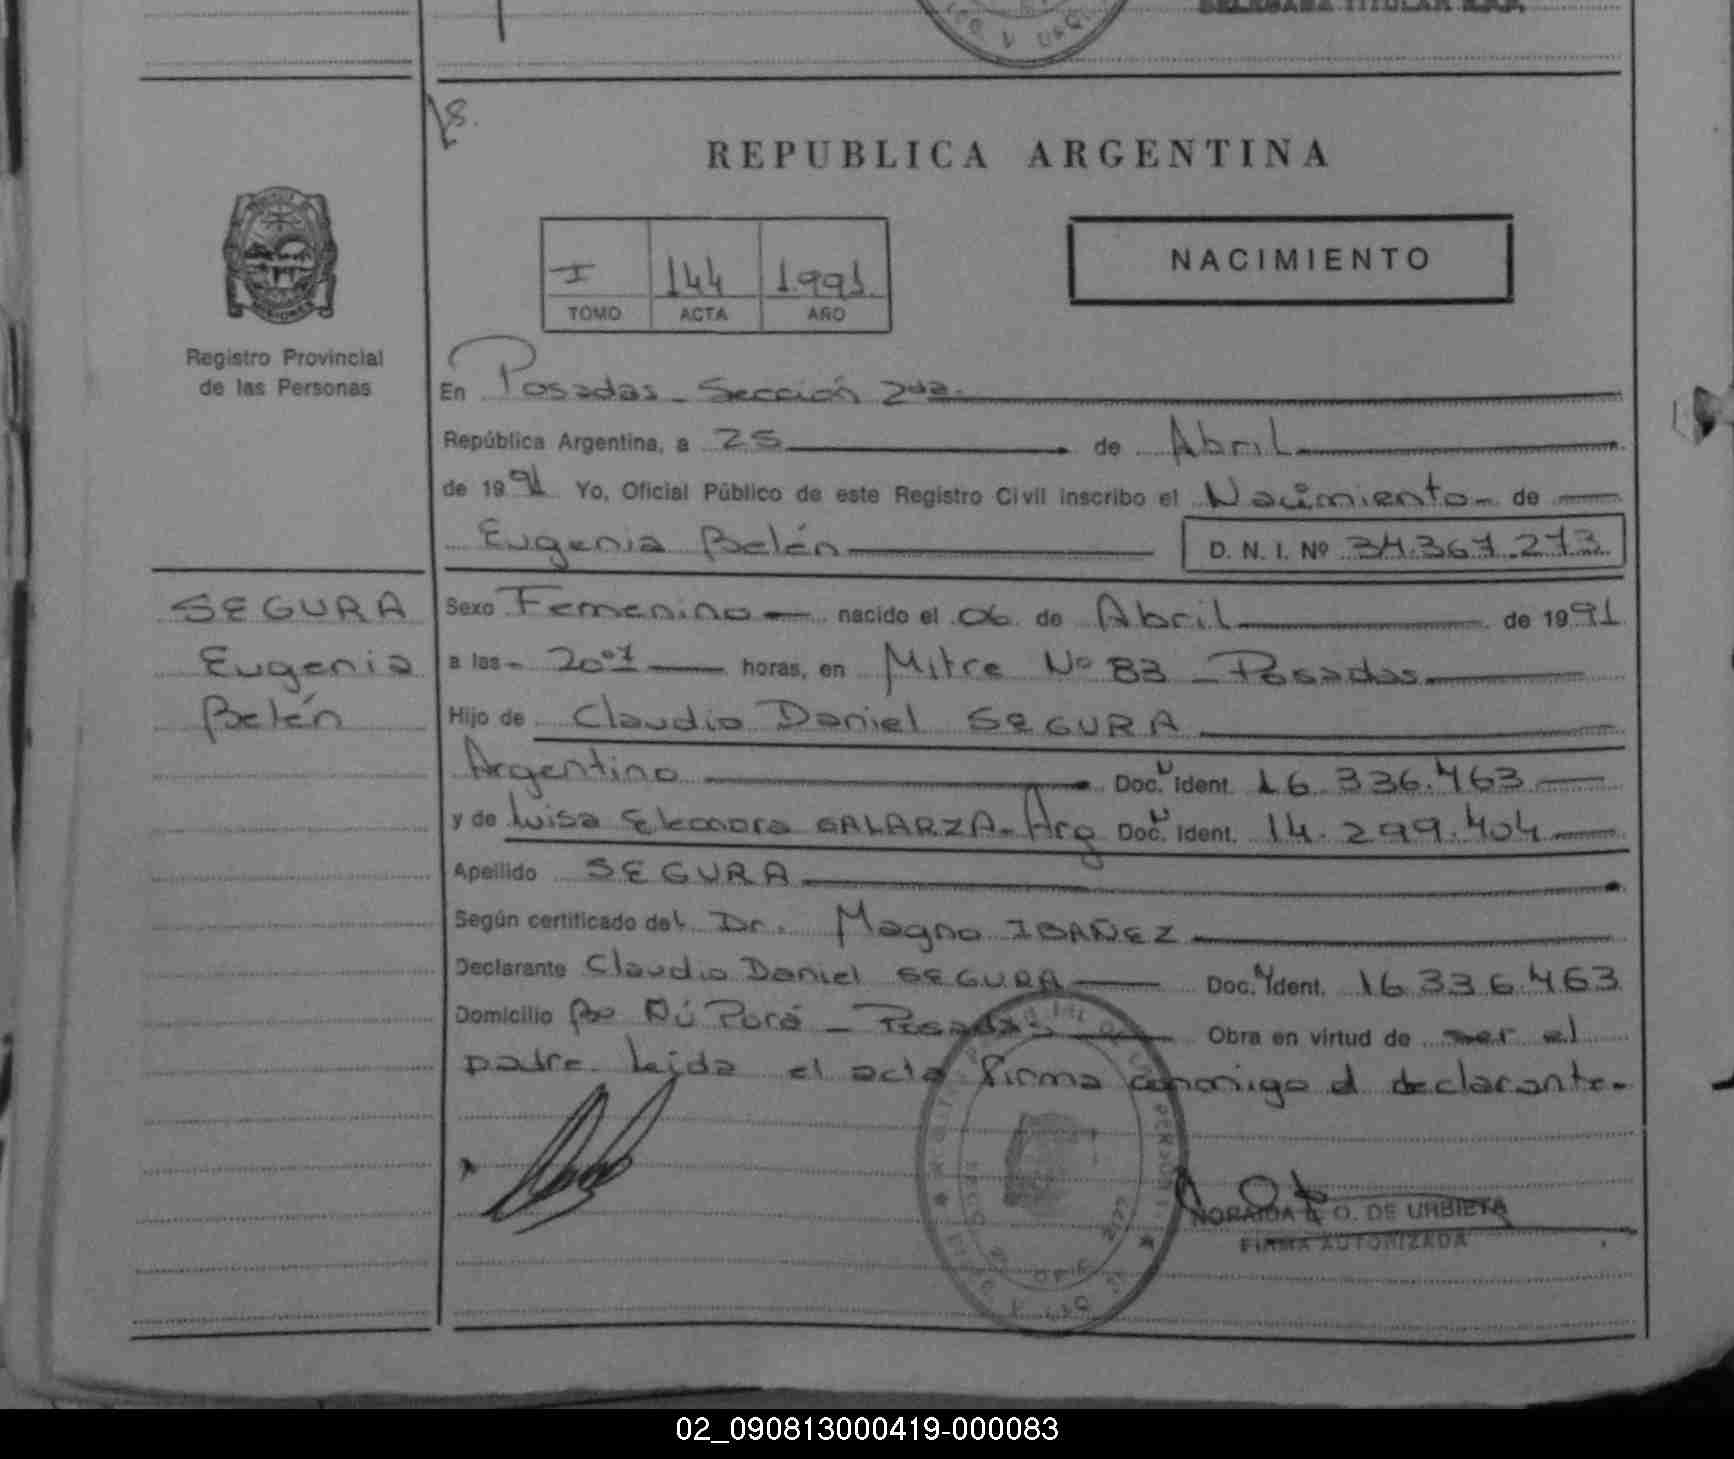 DELEGADA TITULAR R.P.P.
18.
REPUBLICA ARGENTINA
I 144 1.991
TOMO ACTA AÑO
NACIMIENTO
Registro Provincial
de las Personas
En Posadas - Sección 2da.
República Argentina, a 25 de Abril
de 1991 Yo, Oficial Público de este Registro Civil inscribo el Nacimiento de
Eugenia Belén D. N. I. Nº 34.367.273
SEGURA
Eugenia
Belén
Sexo Femenino nacido el 06 de Abril de 1991
a las 20:07 horas, en Mitre Nº 83 - Posadas
Hijo de Claudio Daniel SEGURA
Argentino Doc. N Ident. 16.336.463
y de Luisa Eleonora GALARZA - Arg Doc. N Ident. 14.299.404
Apellido SEGURA
Según certificado del Dr. Magno IBAÑEZ
Declarante Claudio Daniel SEGURA Doc. N Ident. 16.336.463
Domicilio Bo Ñú Porá - Posadas Obra en virtud de ser el
padre. Leída el acta firma conmigo el declarante.
NORAIDA O. DE URBIETA
FIRMA AUTORIZADA
02_090813000419-000083